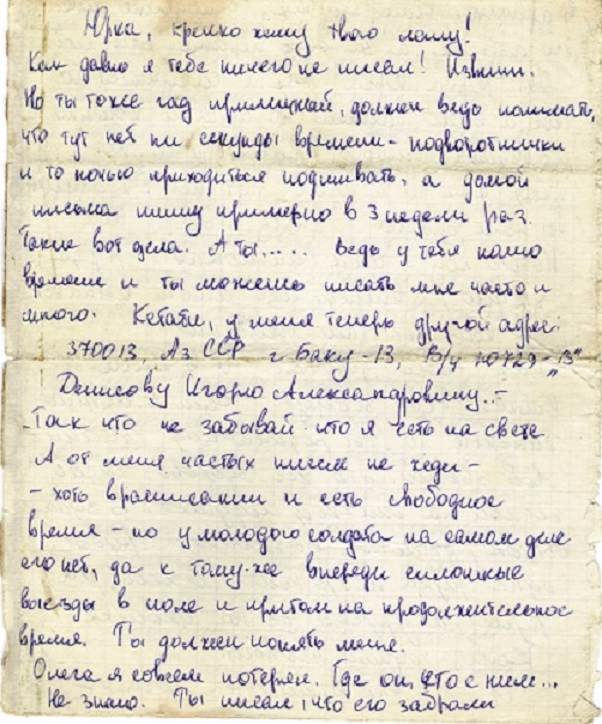 Юрка, крепко жму твою лапу!
Как давно я тебе ничего не писал! Извини.
Но ты тоже гад приличный, должен ведь понимать,
что тут нет ни секунды времени - подворотнички
и то ночью приходиться подшивать, а домой
письма пишу примерно в 3 недели раз.
Такие вот дела. А ты..... ведь у тебя полно
времени и ты можешь писать мне часто и
много. Кстати, у меня теперь другой адрес:
370013, Аз ССР г. Баку-13, В/ч 10729 "В"
Денисову Игорю Александровичу.-
Так что не забывай что я есть на свете
А от меня частых писем не жди -
- хоть в расписании и есть свободное
время - но у молодого солдата на самом деле
его нет, да к тому-же впереди сплошные
выезды в поле и притом на продолжительное
время. Ты должен понять меня.
Олега я совсем потерял. Где он, что с ним...
Не знаю. Ты писал, что его забрали